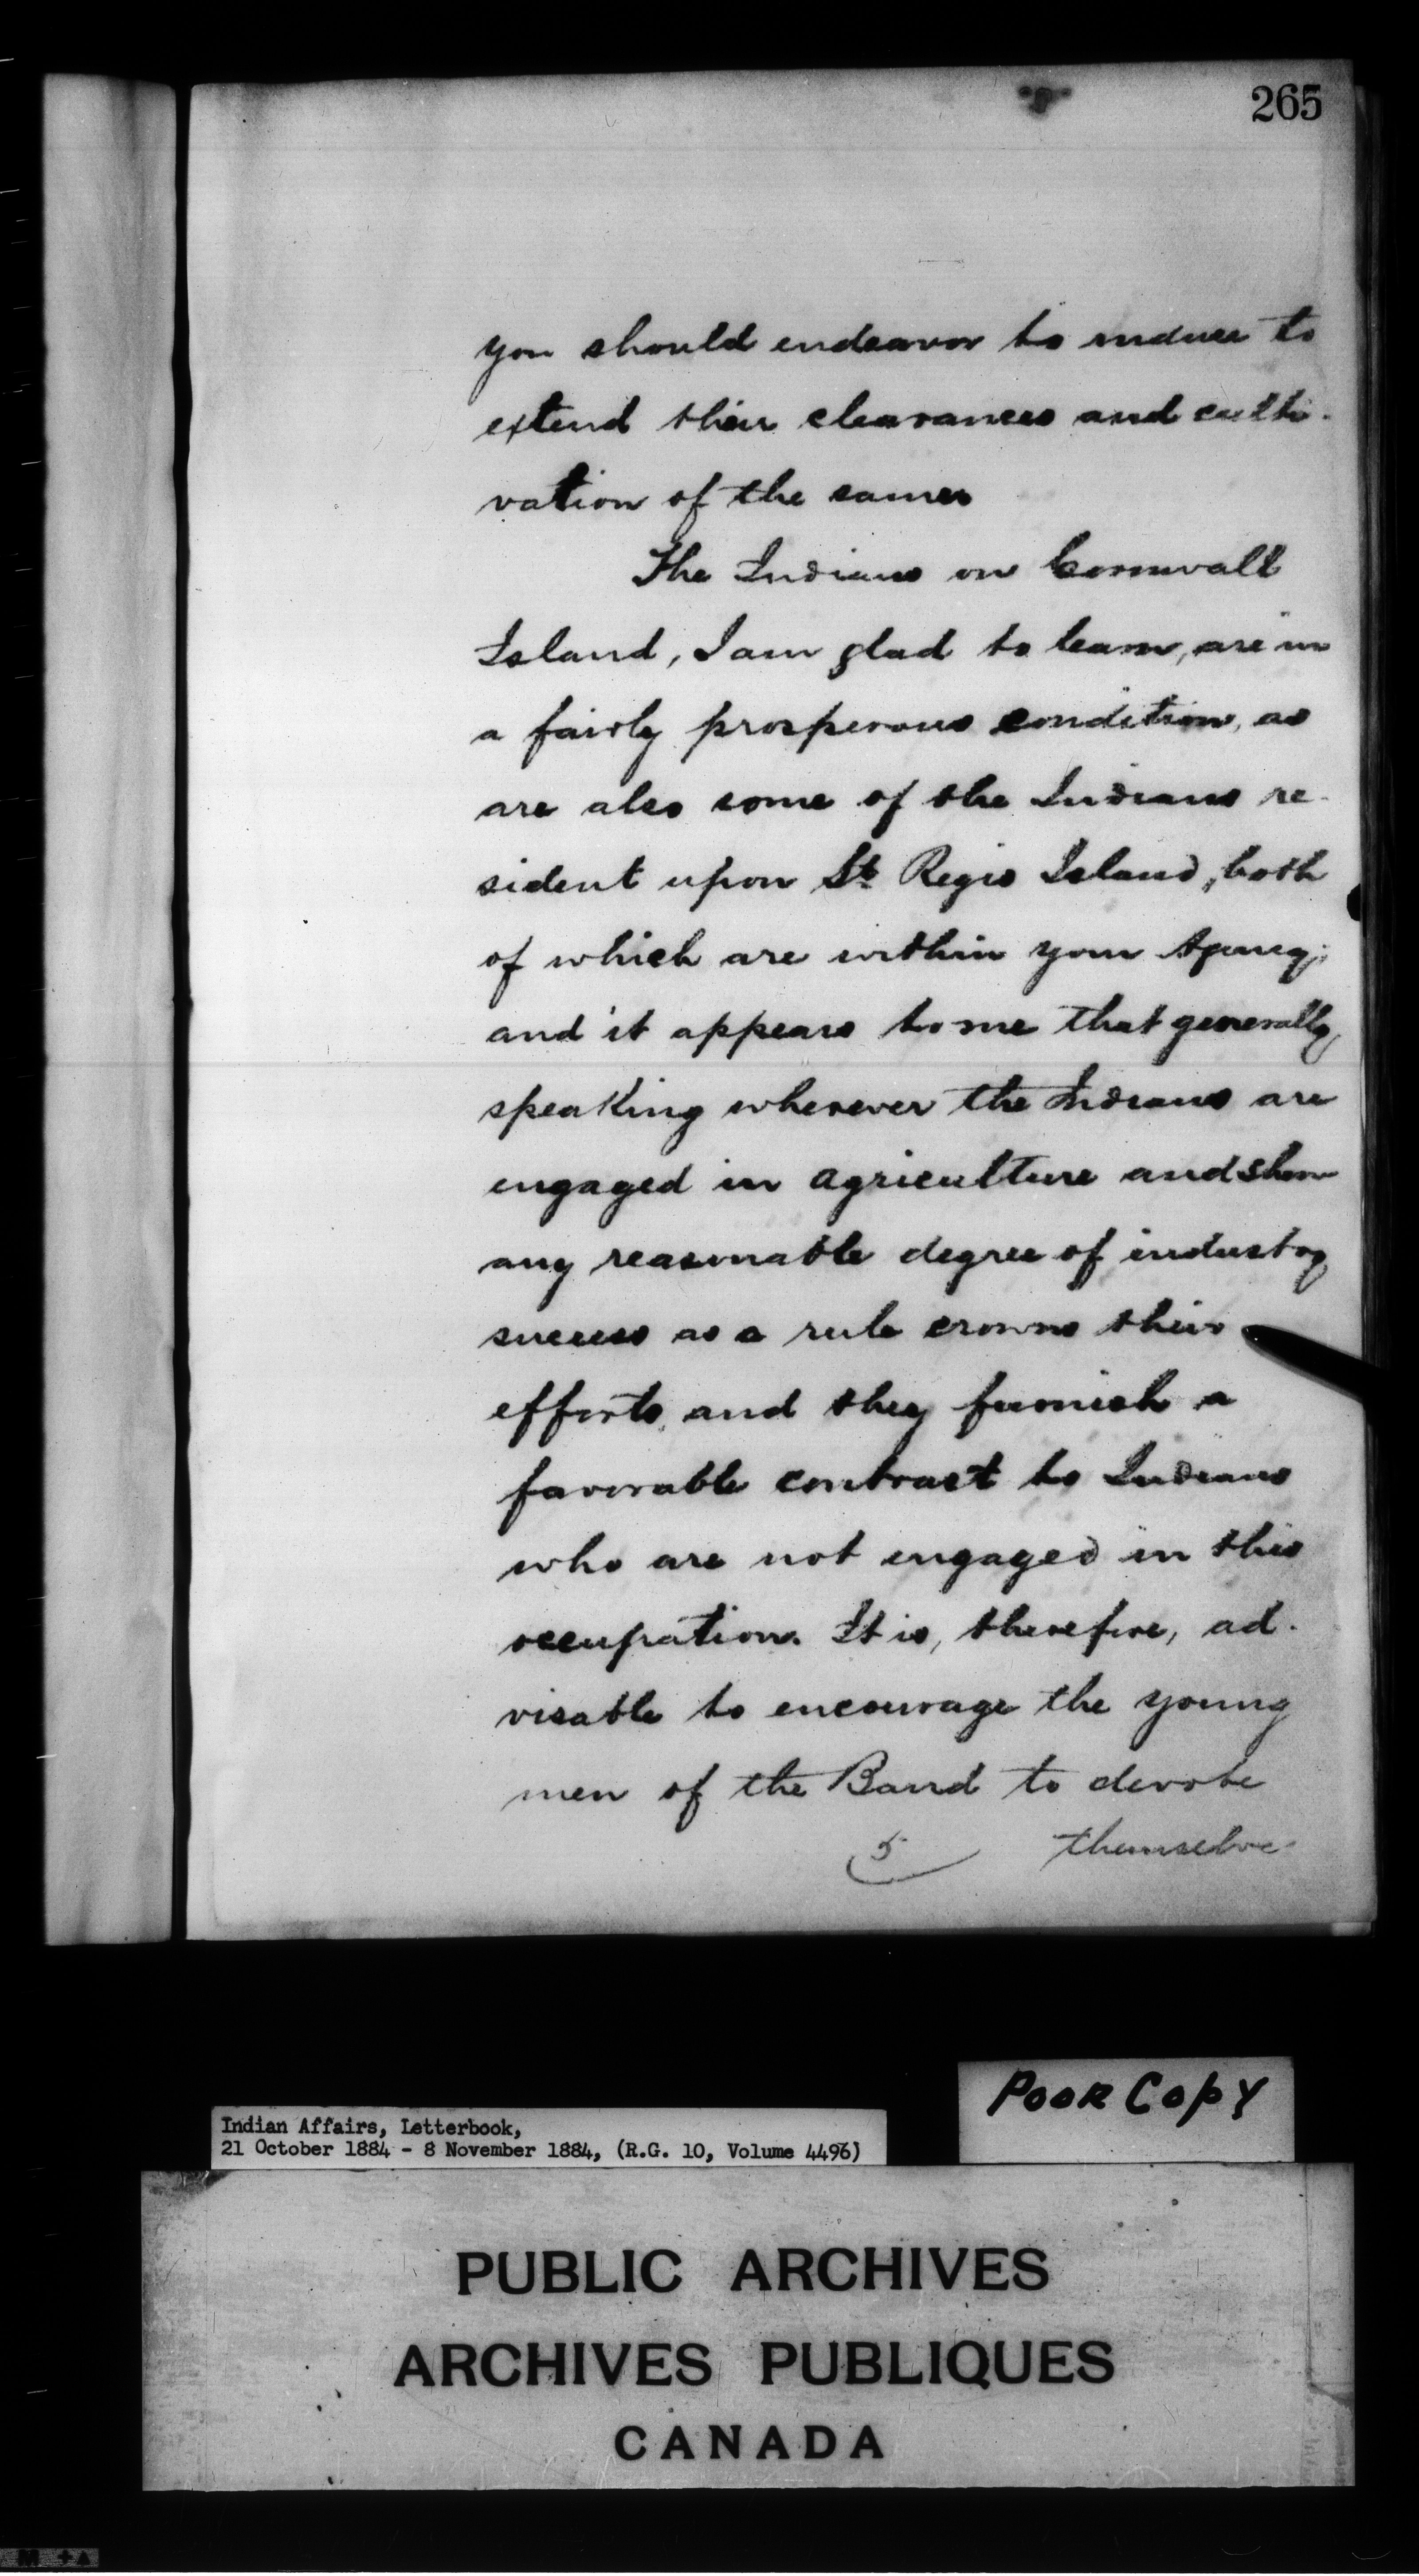 265
you should endeavor to induce to
extend their clearances and culti-
vation of the same.
The Indians on Cornwall
Island, I am glad to learn, are in
a fairly prosperous condition, as
are also some of the Indians re-
sident upon St. Regis Island, both
of which are within your Agency;
and it appears to me that generally
speaking wherever the Indians are
engaged in agriculture and show
any reasonable degree of industry
success as a rule crowns their
efforts, and they furnish a
favorable contrast to Indians
who are not engaged in this
occupation. It is, therefore, ad-
visable to encourage the young
men of the Band to devote
5 themselve
POOR COPY
Indian Affairs, Letterbook,
21 October 1884 - 8 November 1884, (R.G. 10, Volume 4496)
PUBLIC ARCHIVES
ARCHIVES PUBLIQUES
CANADA